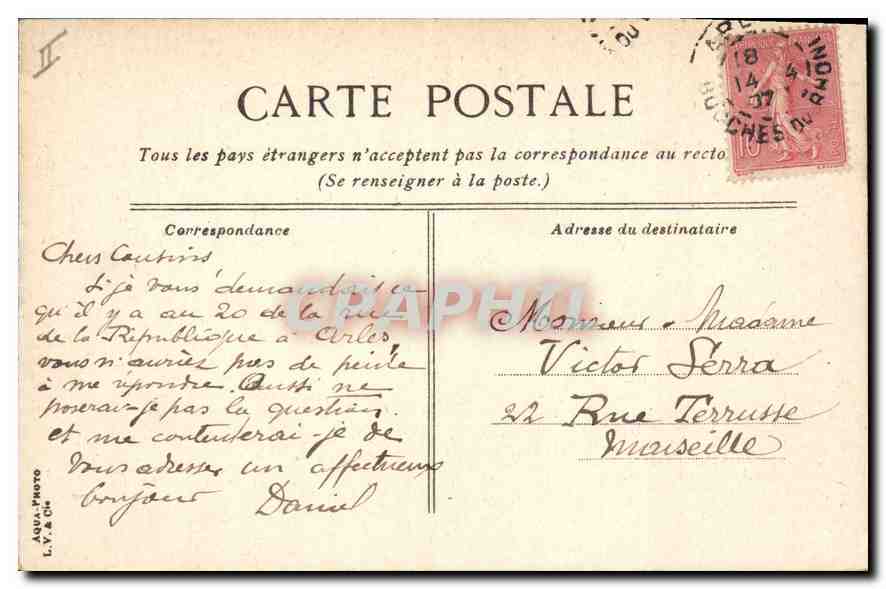 II
CARTE POSTALE
Tous les pays étrangers n'acceptent pas la correspondance au recto
(Se renseigner à la poste.)
Correspondance
Chers Cousins
Si je vous demandais ce
qu'il y a au 20 de la rue
de la République à Arles,
vous n'auriez pas de peine
à me répondre. Aussi ne
poserai-je pas la question
et me contenterai-je de
vous adresser un affectueux
bonjour Daniel
Adresse du destinataire
Monsieur - Madame
Victor Serra
22 Rue Terrusse
Marseille
18
14 - 4
07
BOUCHES DU RHONE
10
CRAPHIL
AQUA-PHOTO
L. V. & Cie